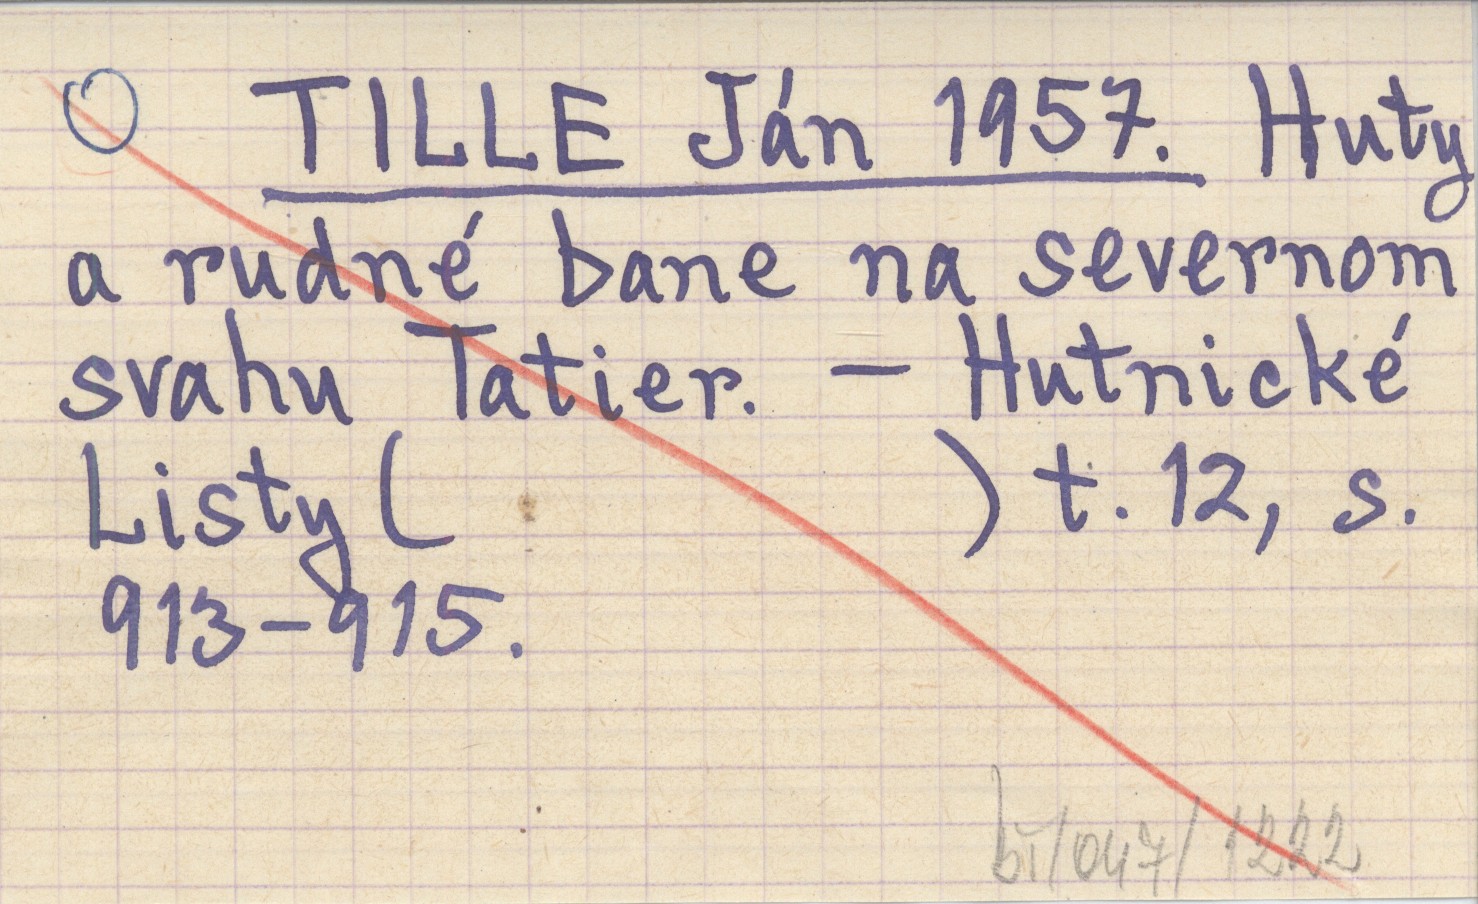 TILLE Ján 1957. Huty
a rudné bane na severnom
svahu Tatier. – Hutnické
Listy ( ) t. 12, s.
913–915.
bi/047/1222